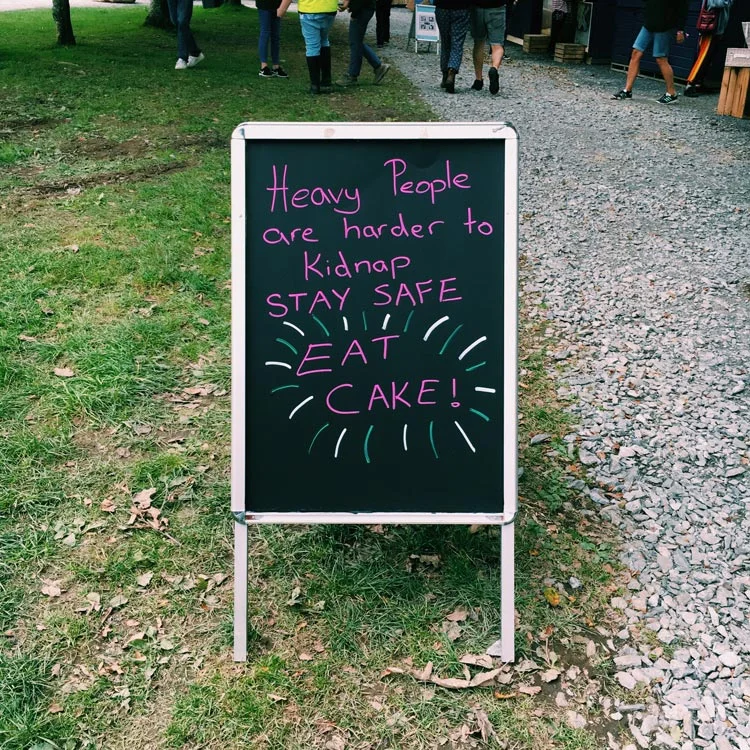 Heavy People
are harder to
Kidnap
STAY SAFE
EAT
CAKE!